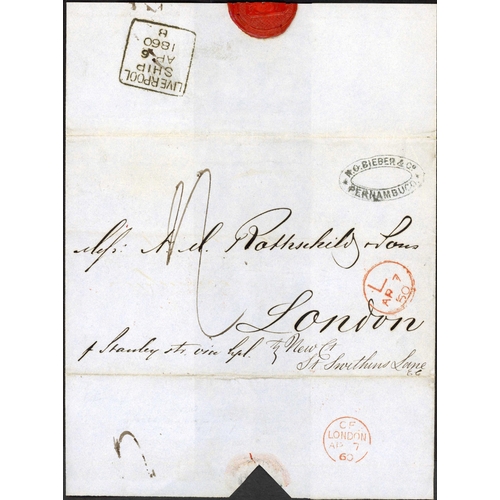 LIVERPOOL
SHIP
AP 6
1860
B
N.O. BIEBER & Co
PERNAMBUCO
Messrs N. M. Rothschild & Sons
L
AP 7
60
London
p Stanley str. via Lpl.
New Ct
St Swithins Lane
CF
LONDON
AP 7
60